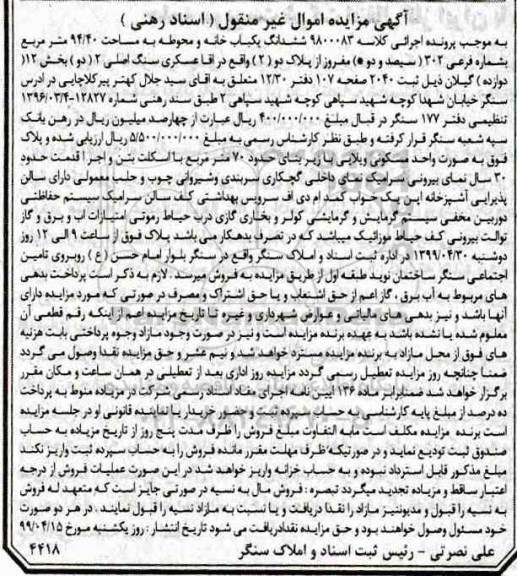 آگهی مزایده اموال غیر منقول ( اسناد رهنی )
به موجب پرونده اجرائی کلاسه ۹۸۰۰۰۸۳ ششدانگ یکباب خانه و محوطه به مساحت ۹۴/۴۰ متر مربع
بشماره فرعی ۱۳۰۲ ( سیصد و دو ) مفروز از پلاک دو ( ۲ ) واقع در آقا عسکری سنگ اصلی ۲( دو ) بخش ۱۲(
دوازده ) گیلان ذیل ثبت ۲۰۴۰ صفحه ۱۰۷ دفتر ۱۲/۳۰ متعلق به آقای سید جلال کهتر پیرکلاچایی در آدرس
سنگر خیابان شهدا کوچه شهید سپاهی کوچه شهید سپاهی ۲ طبق سند رهنی شماره ۱۲۸۲۷-۱۳۹۶/۰۳/۴
تنظیمی دفتر ۱۷۷ سنگر در قبال مبلغ ۴۰۰/۰۰۰/۰۰۰ ریال عبارت از چهارصد میلیون ریال در رهن بانک
سپه شعبه سنگر قرار گرفته و طبق نظر کارشناس رسمی به مبلغ ۵/۵۰۰/۰۰۰/۰۰۰ ریال ارزیابی شده و پلاک
فوق به صورت واحد مسکونی ویلایی با زیر بنای حدود ۷۰ متر مربع با اسکلت بتن و آجر ا قدمت حدود
۳۰ سال نمای بیرونی سرامیک نمای داخلی گچکاری سربندی وشیروانی چوب و حلب معمولی دارای سالن
پذیرایی آشپزخانه اپن یک خواب کمد ام دی اف سرویس بهداشتی کف سالن سرامیک سیستم حفاظتی
دوربین مخفی سیستم گرمایش و گرمایشی کولر و بخاری گازی درب حیاط رموتی امتیازات آب و برق و گاز
توالت بیرونی کف حیاط موزائیک میباشد که در تصرف بدهکار می باشد پلاک فوق از ساعت ۹ الی ۱۲ روز
دوشنبه ۱۳۹۹/۰۴/۳۰ در اداره ثبت اسناد و املاک سنگر واقع در سنگر بلوار امام حسن ( ع ) روبروی تامین
اجتماعی سنگر ساختمان نوید طبقه اول از طریق مزایده به فروش میرسد . لازم به ذکر است پرداخت بدهی
های مربوط به آب برق ، گاز اعم از حق انشعاب و یا حق اشتراک و مصرف در صورتی که مورد مزایده دارای
آنها باشد و نیز بدهی های مالیاتی و عوارض شهرداری و غیره تا تاریخ مزایده اعم از اینکه رقم قطعی آن
معلوم شده یا نشده باشد به عهده برنده مزایده است و نیز در صورت وجود مازاد وجوه پرداختی بابت هزینه
های فوق از محل مازاد به برنده مزایده مسترد خواهد شد و نیم عشر و حق مزایده نقدا وصول می گردد
ضمنا چنانچه روز مزایده تعطیل رسمی گردد مزایده روز اداری بعد از تعطیلی در همان ساعت و مکان مقرر
برگزار خواهد شد ضمنابرابر ماده ۱۳۶ آیین نامه اجرای مفاد اسناد رسمی شرکت در مزیاده منوط به پرداخت
ده درصد از مبلغ پایه کارشناسی به حساب سپرده ثبت و حضور خریدار یا نماینده قانونی او در جلسه مزایده
است برنده مزایده مکلف است مابه التفاوت مبلغ فروش را ظرف مدت پنج روز از تاریخ مزیاده به حساب
صندوق ثبت تودیع نماید و در صورتیکه ظرف مهلت مقرر مانده فروش را به حساب سپرده ثبت واریز نکند
مبلغ مذکور قابل استرداد نبوده و به حساب خزانه واریز خواهد شد در این صورت عملیات فروش از درجه
اعتبار ساقط و مزیاده تجدید میگردد تبصره : فروش مال به نسیه در صورتی جایز است که متعهد له فروش
به نسیه را قبول و مدیونیز مازاد را نقدا دریافت و یا نسبت به مازاد نسیه را قبول نمایند . در هر دو صورت
خود مسئول وصول خواهند بود و حق مزایده نقدادریافت می شود تاریخ انتشار : روز یکشنبه مورخ ۹۹/۰۴/۱۵
علی نصرتی - رئیس ثبت اسناد و املاک سنگر
۴۴۱۸